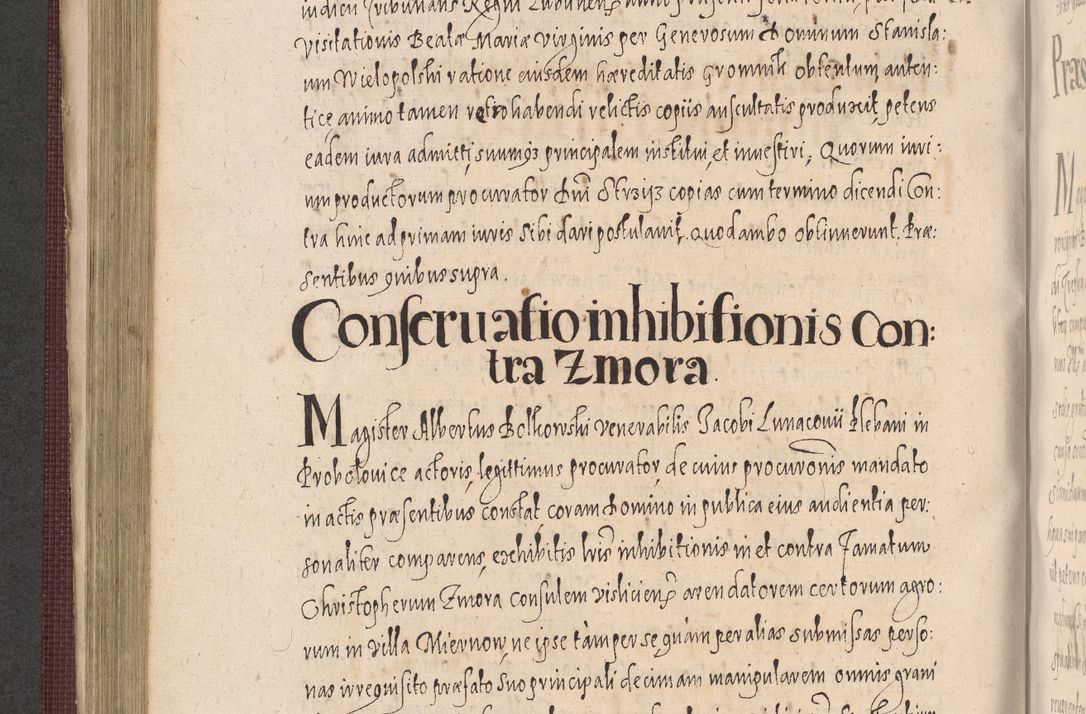 Visitationis Beatæ Mariæ Virginis per Generosum Dominum Stanisla:
um Wielopolski ratione eiusdem hæreditatis Gromnik obtentum auten:
ticę animo tamen retro habendi relictis copiis auscultatis produxit, petens
eadem iura admitti, suumq3 principalem institui et investiri, Quorum iuri:
um productorum procurator Dni Strzyz copias cum termino dicendi Con:
tra hinc ad primam iuris sibi dari postulavit. Quod ambo obtinuerunt. Præ:
sentibus quibus supra.
Conservatio inhibitionis Con:
tra Zmora.
Magister Albertus Bolkowski venerabilis Jacobi Lunacovii Plebani in
Probolovice actoris, legittimus procurator, de cuius procuronis mandato
in actis præsentibus constat coram Domino in publica eius audientia per:
sonaliter comparens, exhibitis lris inhibitionis in et contra Famatum
Christopherum Zmora consulem vislicien arendatorem certorum agro:
rum in villa Miernow, ne ipse tàm per se, quàm per alias submissas perso:
nas irrequisito præfato suo principali decimam manipularem omnis grani